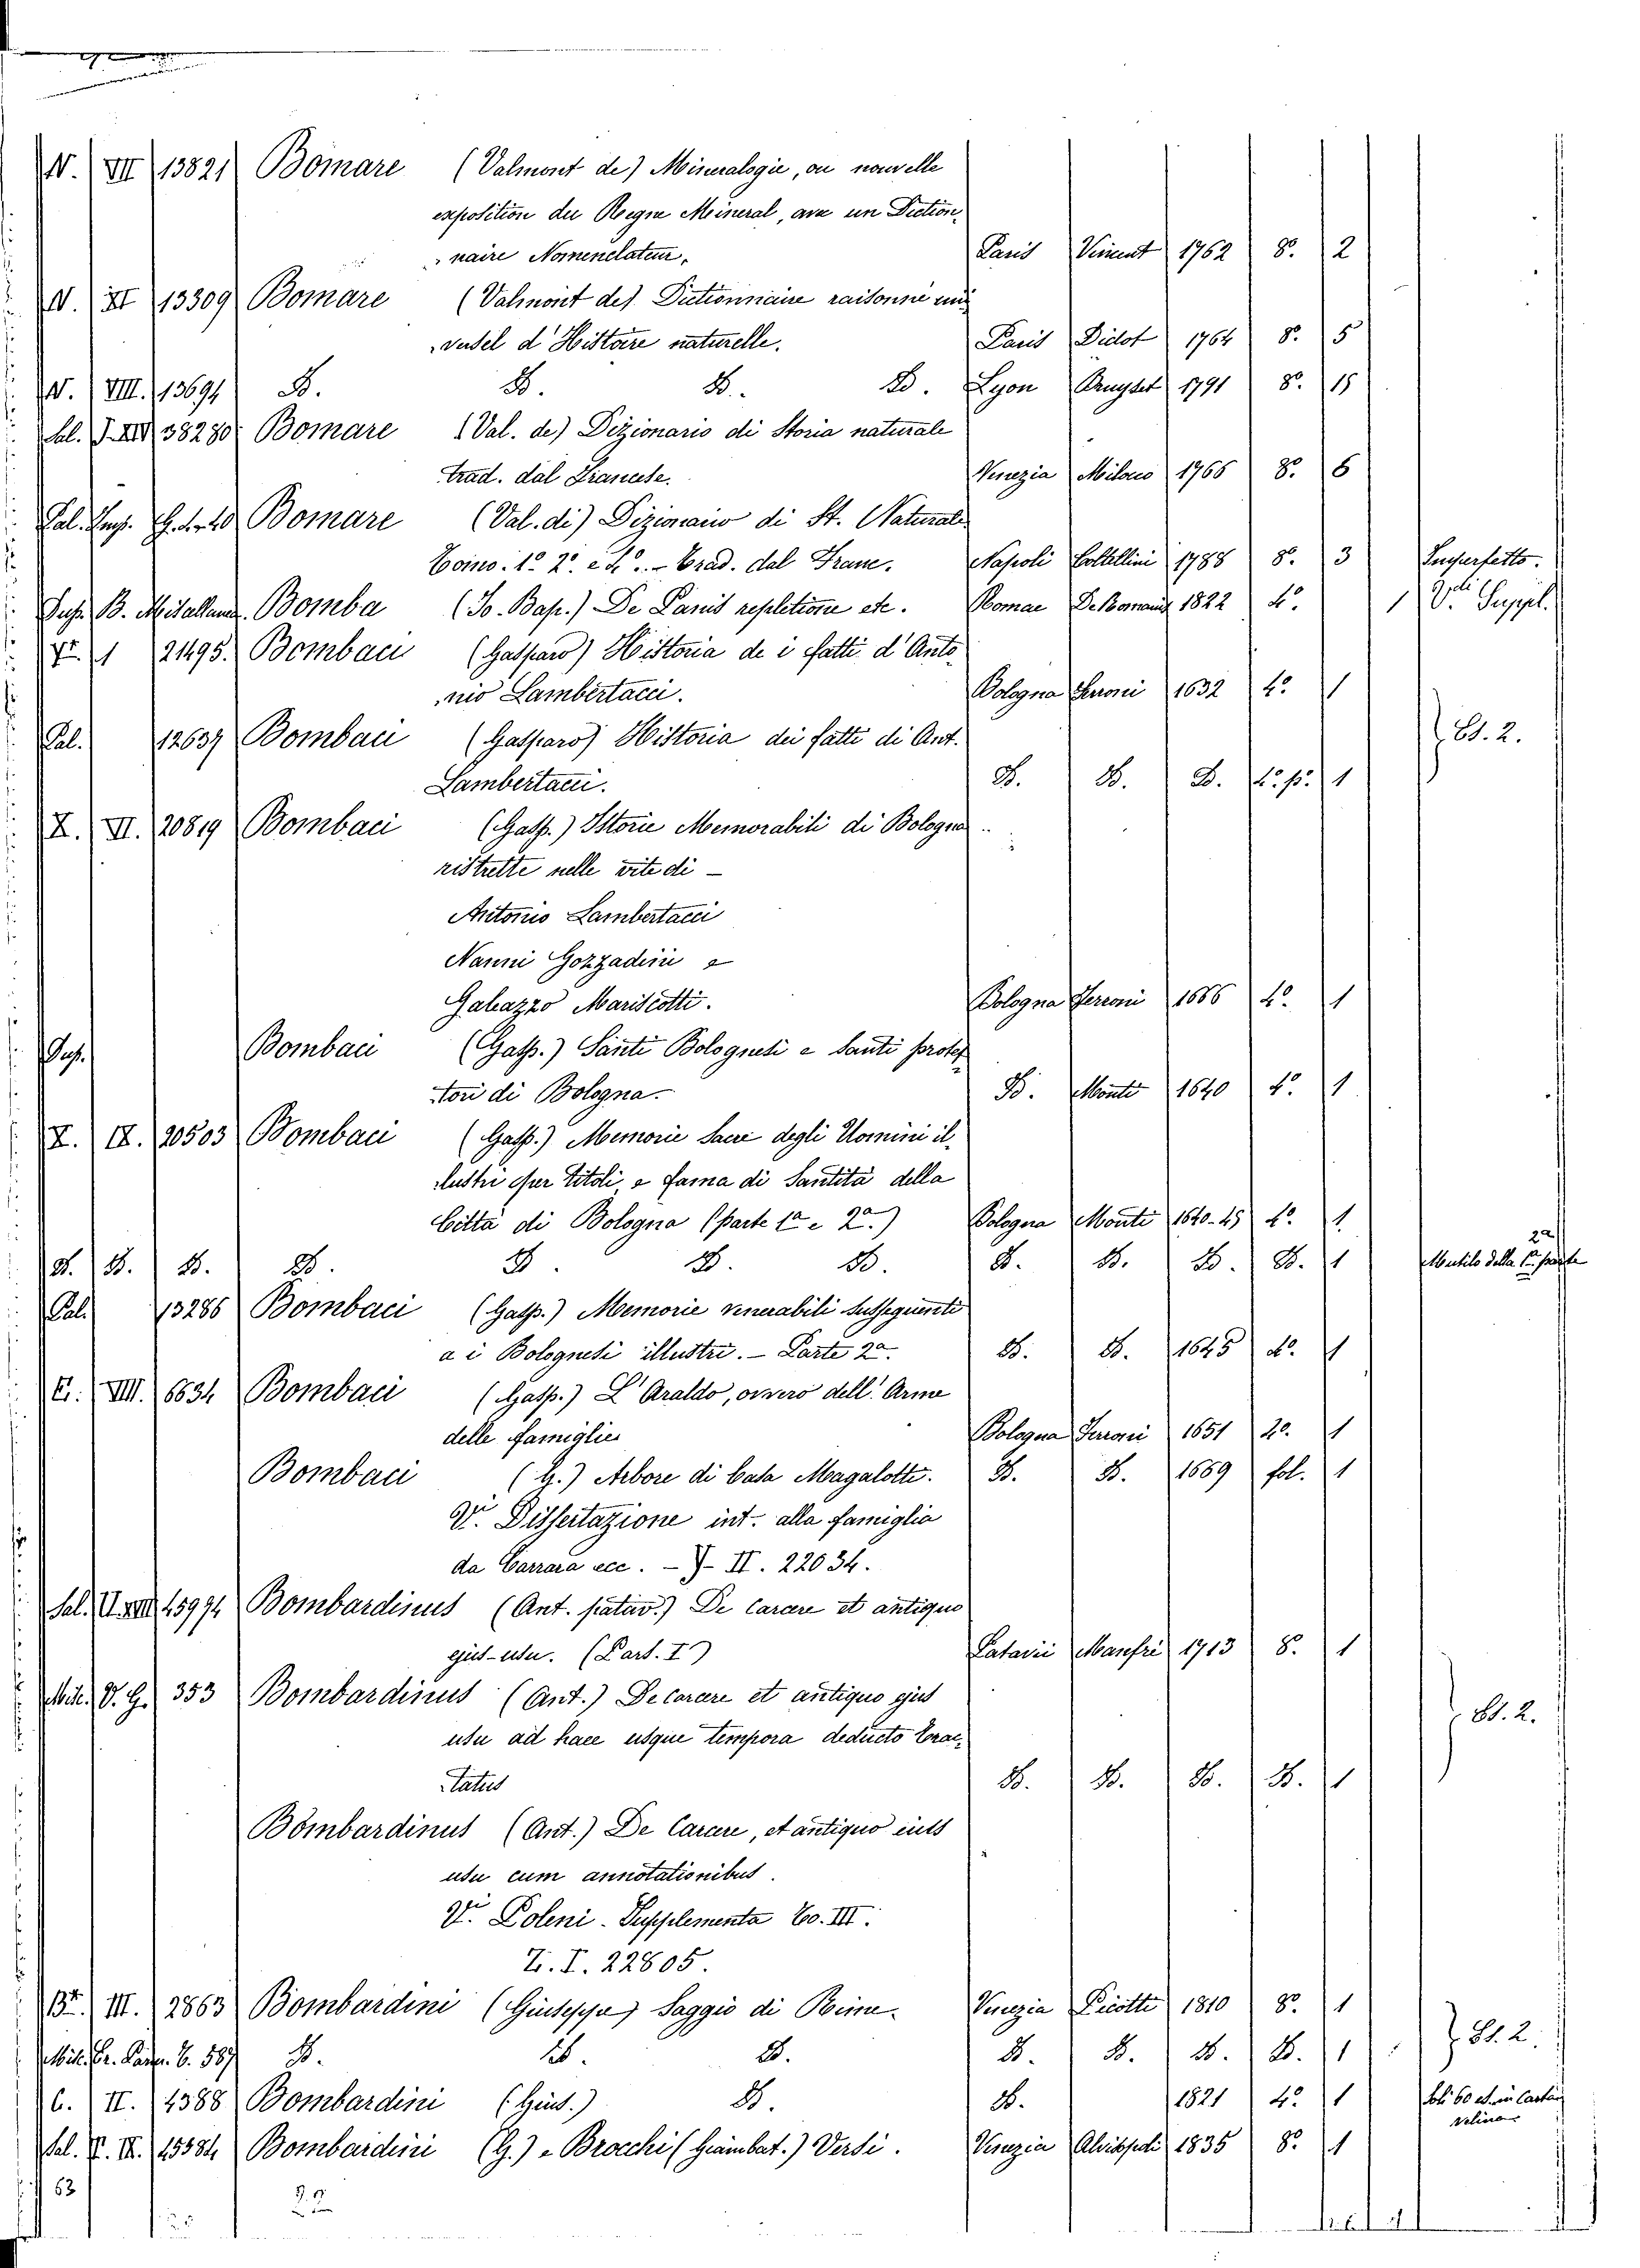 N. VII 13821 Bomare (Valmont de) Mineralogie, ou nouvelle
exposition du Regne Mineral, avec un Diction,
naire Nomenclateur, Paris Vincent 1762 8.º 2
N. XI 13309 Bomare (Valmont de) Dictionnaire raisonné uni
versel d'Histoire naturelle. Paris Didot 1764 8.º 5
N. VIII. 13694 D. D. D. D. Lyon Bruyset 1791 8.º 15
Sal. J. XIV 38280 Bomare (Val. de) Dizionario di Storia naturale
trad. dal Francese. Venezia Milocco 1766 8.º 6
Bomare (Val. di) Dizionario di St. Naturale
Tomo. 1.º 2.º e 4.º - Trad. dal Franc. Napoli Coltellini 1788 8.º 3 Imperfetto.
B. Miscellanea Bomba (Jo. Bap.) De Panis repletione etc. Romae De Romanis 1822 4.º 1 Suppl.
1 21495. Bombaci (Gasparo) Historia de i fatti d'Anto
nio Lambertacci. Bologna Ferroni 1632 4.º 1
Pal. 12637 Bombaci (Gasparo) Historia dei fatti di Ant.
Lambertacci. D. D. D. 4.º p.º 1 Es. 2.
X. VI. 20819 Bombaci (Gasp.) Istorie Memorabili di Bologna
ristrette nelle vite di -
Antonio Lambertacci
Nanni Gozzadini e
Galeazzo Mariscotti. Bologna Ferroni 1666 4.º 1
Bombaci (Gasp.) Santi Bolognesi e Santi protet
tori di Bologna. D. Monti 1640 4.º 1
X. IX. 20503 Bombaci (Gasp.) Memorie Sacre degli Uomini il
lustri per titoli, e fama di Santità della
Città di Bologna (parte 1.ª e 2.ª) Bologna Monti 1640-45 4.º 1
D. D. D. D. D. D. D. D. D. D. D. 1 Mutilo della 1.ª parte
2ª
Pal. 13286 Bombaci (Gasp.) Memorie venerabili susseguenti
a i Bolognesi illustri. - Parte 2.ª D. D. 1645 4.º 1
E. VIII. 6634 Bombaci (Gasp.) L'Araldo, ovvero dell'Arme
delle famiglie Bologna Ferroni 1651 1
Bombaci (G.) Arbore di Casa Magalotti. D. D. 1669 fol. 1
V. Dissertazione int. alla famiglia
da Carrara ecc. - J - II. 22034.
Sal. 45994 Bombardinus (Ant. patav.) De Carcere et antiquo
ejus-usu. (Pars. I) Patavii Manfrè 1713 8. 1
V. G. 353 Bombardinus (Ant.) De carcere et antiquo ejus
usu ad haec usque tempora deducto Trac
tatus D. D. D. D. 1 Es. 2.
Bombardinus (Ant.) De Carcere, et antiquo eius
usu cum annotationibus.
V. Poleni - Supplementa To. III.
Z. I. 22805.
III. 2863 Bombardini (Giuseppe) Saggio di Rime. Venezia Picotti 1810 8.º 1
587 D. D. D. D. D. D. D. 1 Es. 2.
C. II. 4388 Bombardini (Gius.) D. D. 1821 4.º 1 Soli 60 es. in Carta
velina
Sal. 45584 Bombardini (G.) e Brocchi (Giambat.) Versi. Venezia Alvisopoli 1835 8.º 1
63
22